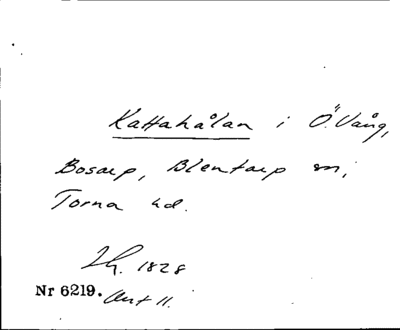 Kattahålan i Ö. Vång,
Bosarp, Blentarp sn,
Torna hd.
1828
Nr 6219. Akt 11.